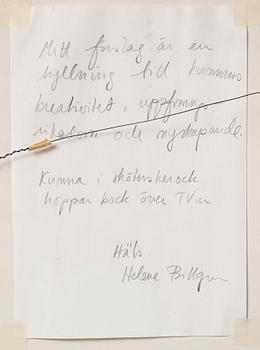 Mitt förslag är en
hyllning till kvinnans
kreativitet, uppfinnings
rikedom och nyskapande.
Kvinna i sköterskerock
hoppar bock över TV:n
Häls.
Helene Billgren